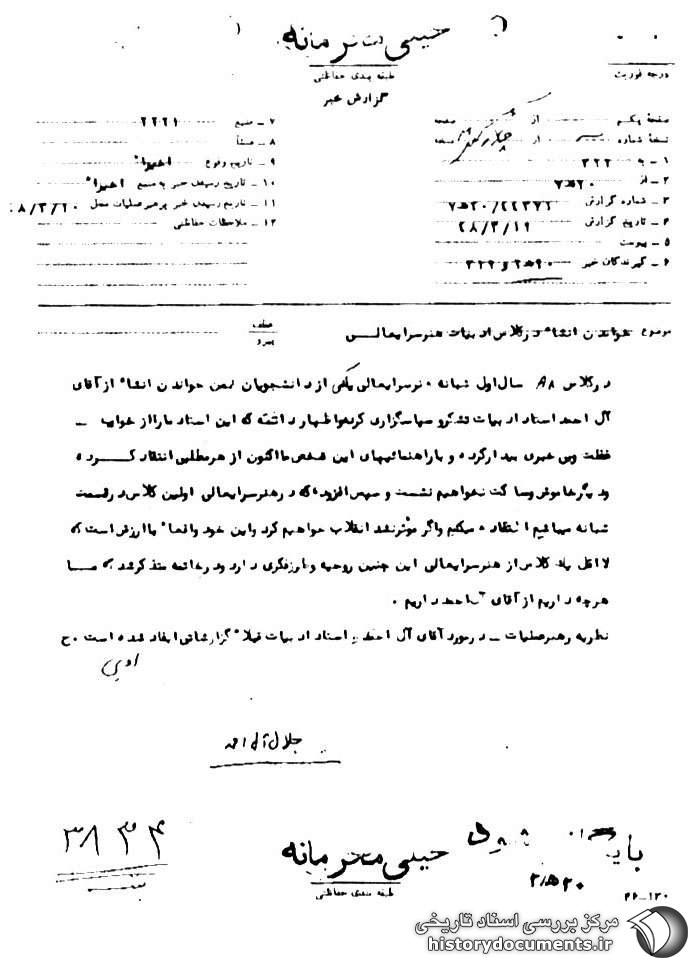 خیلی محرمانه
طبقه بندی حفاظتی
درجه فوریت
گزارش خبر
صفحه یکم از صفحه
نسخه شماره از نسخه
۱ ـ به ۳۲۲
۲ ـ از ۲۰ه‍۷
۳ ـ شماره گزارش ۲۲۳۷۲/۲۰ه‍۷
۴ ـ تاریخ گزارش ۲۸/۳/۱۹
۵ ـ پیوست
۶ ـ گیرندگان خبر
۷ ـ منبع ۲۲۲۱
۸ ـ منشأ
۹ ـ تاریخ وقوع اخیراً
۱۰ ـ تاریخ رسیدن خبر به منبع اخیراً
۱۱ ـ تاریخ رسیدن خبر برهبر عملیات محل ۸/۳/۲۰
۱۲ ـ ملاحظات حفاظتی
موضوع خواندن انشاء در کلاس ادبیات هنرسرایعالی
عطف
پیرو
در کلاس ۸A سال اول شبانه هنرسرایعالی یکی از دانشجویان ضمن خواندن انشاء از آقای
آل احمد استاد ادبیات تشکر و سپاسگزاری کرده و اظهار داشته که این استاد ما را از خواب
غفلت و بی خبری بیدار کرده و با راهنمائیهای این شخص ما اکنون از هر مطلبی انتقاد کرده
و دیگر خاموش و ساکت نخواهیم نشست و سپس افزوده که در هنرسرایعالی اولین کلاس در قسمت
شبانه میباشیم انتقاد میکنیم و اگر موثر نشد انقلاب خواهیم کرد و این خود واقعاً با ارزش است که
لااقل یک کلاس از هنرسرایعالی این چنین روحیه و طرز فکری دارد و در خاتمه متذکر شد که ما
هرچه داریم از آقای آل احمد داریم .
نظریه رهبر عملیات ـ در مورد آقای آل احمد استاد ادبیات قبلاً گزارشاتی ایفاد شده است . ح
جلال آل احمد
۳۸۳۴
خیلی محرمانه
طبقه بندی حفاظتی
۲۰ه‍۲
۲۶ــ۱۳۰
مرکز بررسی اسناد تاریخی
historydocuments.ir